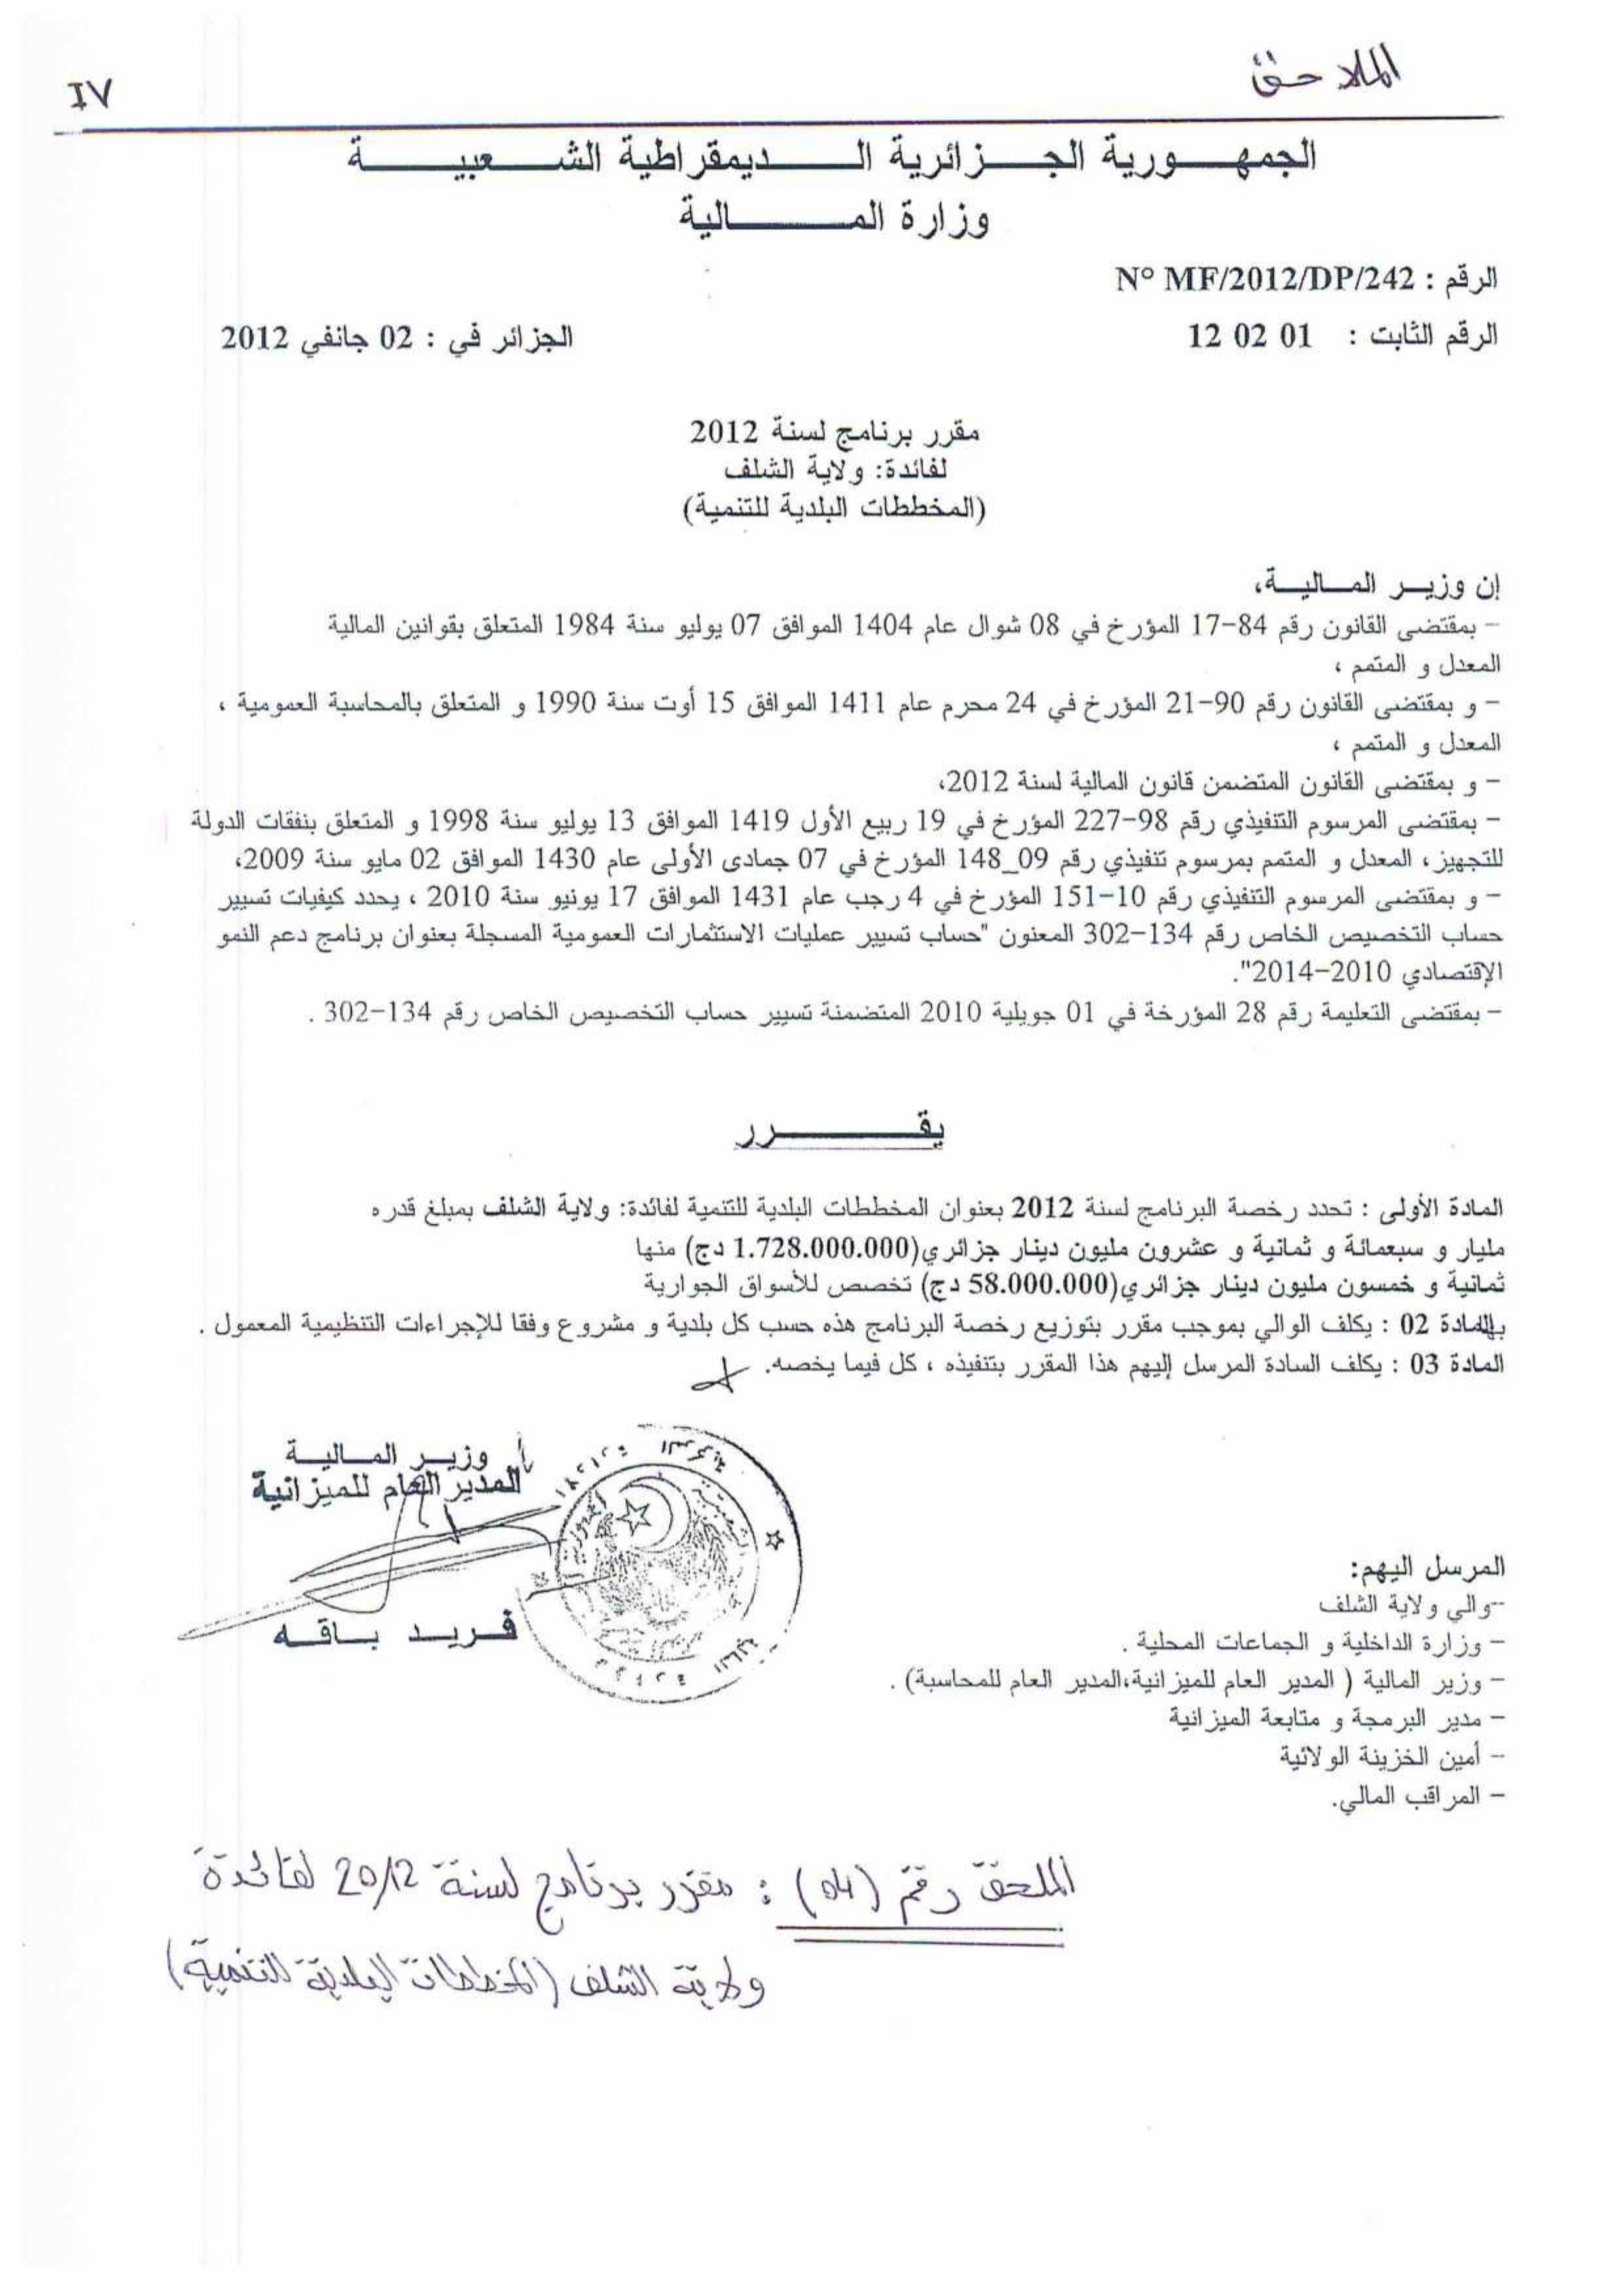 الملاحق
IV
الجمهورية الجزائرية الديمقراطية الشعبية
وزارة المالية
الرقم : N° MF/2012/DP/242
الرقم الثابت : 01 02 12
الجزائر في : 02 جانفي 2012
مقرر برنامج لسنة 2012
لفائدة: ولاية الشلف
(المخططات البلدية للتنمية)
إن وزير المالية،
- بمقتضى القانون رقم 84-17 المؤرخ في 08 شوال عام 1404 الموافق 07 يوليو سنة 1984 المتعلق بقوانين المالية
المعدل و المتمم ،
- و بمقتضى القانون رقم 90-21 المؤرخ في 24 محرم عام 1411 الموافق 15 أوت سنة 1990 و المتعلق بالمحاسبة العمومية ،
المعدل و المتمم ،
- و بمقتضى القانون المتضمن قانون المالية لسنة 2012،
- بمقتضى المرسوم التنفيذي رقم 98-227 المؤرخ في 19 ربيع الأول 1419 الموافق 13 يوليو سنة 1998 و المتعلق بنفقات الدولة
للتجهيز، المعدل و المتمم بمرسوم تنفيذي رقم 09_148 المؤرخ في 07 جمادى الأولى عام 1430 الموافق 02 مايو سنة 2009،
- و بمقتضى المرسوم التنفيذي رقم 10-151 المؤرخ في 4 رجب عام 1431 الموافق 17 يونيو سنة 2010 ، يحدد كيفيات تسيير
حساب التخصيص الخاص رقم 134-302 المعنون "حساب تسيير عمليات الاستثمارات العمومية المسجلة بعنوان برنامج دعم النمو
الإقتصادي 2010-2014".
- بمقتضى التعليمة رقم 28 المؤرخة في 01 جويلية 2010 المتضمنة تسيير حساب التخصيص الخاص رقم 134-302 .
يقرر
المادة الأولى : تحدد رخصة البرنامج لسنة 2012 بعنوان المخططات البلدية للتنمية لفائدة: ولاية الشلف بمبلغ قدره
مليار و سبعمائة و ثمانية و عشرون مليون دينار جزائري(1.728.000.000 دج) منها
ثمانية و خمسون مليون دينار جزائري(58.000.000 دج) تخصص للأسواق الجوارية
المادة 02 : يكلف الوالي بموجب مقرر بتوزيع رخصة البرنامج هذه حسب كل بلدية و مشروع وفقا للإجراءات التنظيمية المعمول .
المادة 03 : يكلف السادة المرسل إليهم هذا المقرر بتنفيذه ، كل فيما يخصه.
وزير المالية
المدير العام للميزانية
فريد باقه
المرسل اليهم:
-والي ولاية الشلف
- وزارة الداخلية و الجماعات المحلية .
- وزير المالية ( المدير العام للميزانية،المدير العام للمحاسبة) .
- مدير البرمجة و متابعة الميزانية
- أمين الخزينة الولائية
- المراقب المالي.
الملحق رقم (04) : مقرر برنامج لسنة 2012 لفائدة
ولاية الشلف (المخططات البلدية للتنمية)